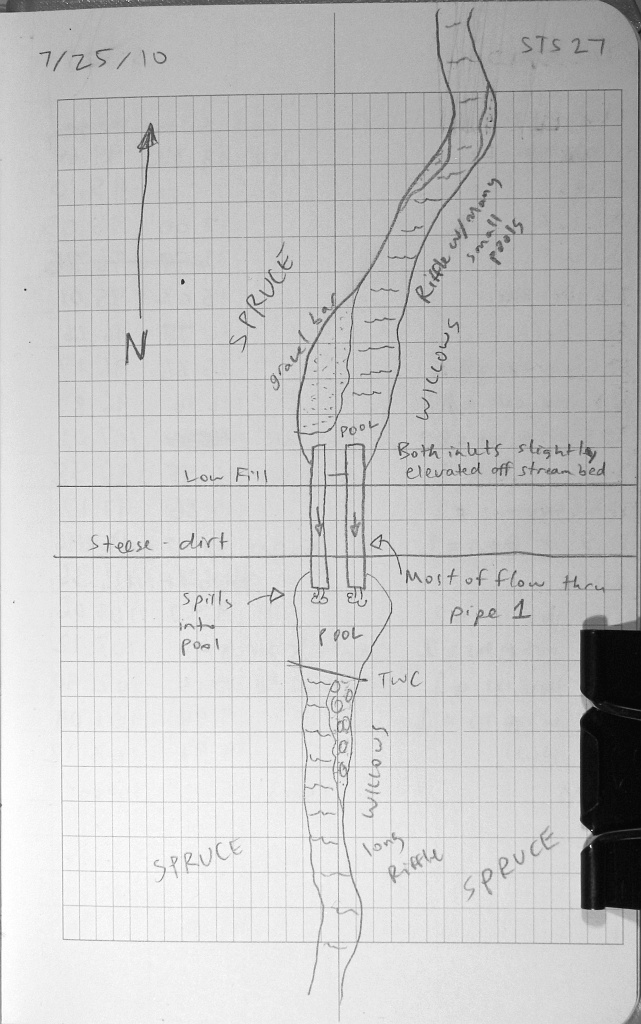 7/25/10
STS 27
N
SPRUCE
gravel bar
Riffle w/ Many
small
pools
WILLOWS
POOL
Both inlets slightly
elevated off streambed
Low Fill
Steese - dirt
Most of flow thru
pipe 1
Spills
into
pool
POOL
TWC
WILLOWS
long
Riffle
SPRUCE
SPRUCE